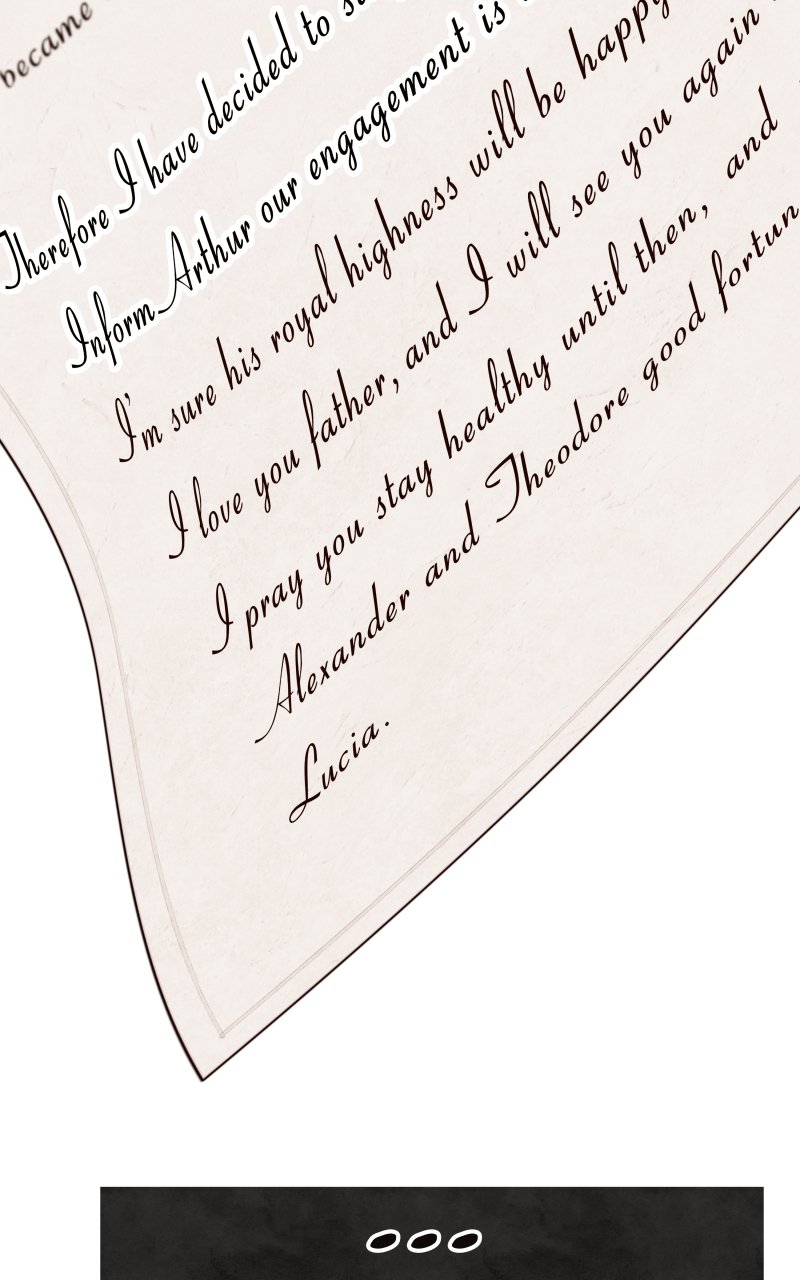 became
Therefore I have decided to
Inform Arthur our engagement is
I'm sure his royal highness will be happy
I love you father, and I will see you again
I pray you stay healthy until then, and
Alexander and Theodore good
Lucia.
...